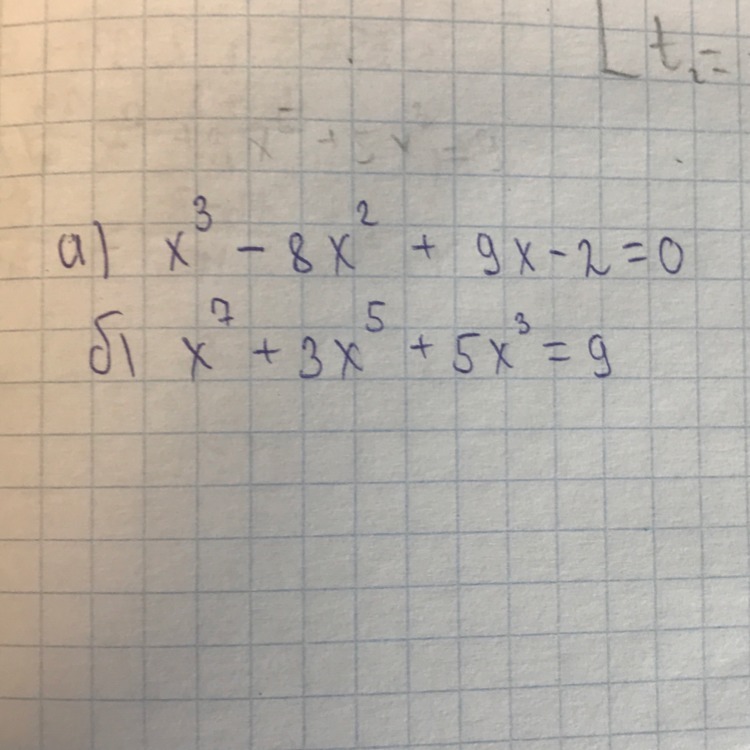 t₂=
а) x³ - 8x² + 9x - 2 = 0
б) x⁷ + 3x⁵ + 5x³ = 9